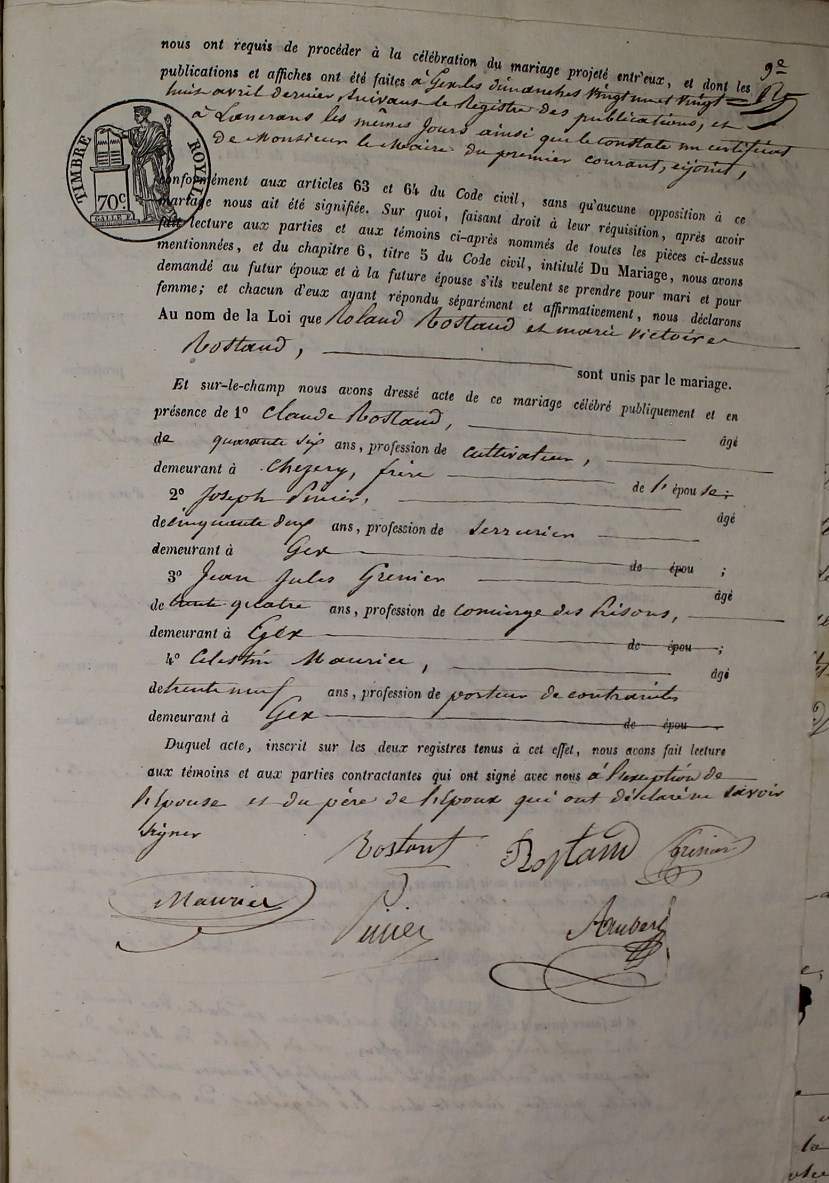 nous ont requis de procéder à la célébration du mariage projeté entr'eux, et dont les
9e
publications et affiches ont été faites à Gex les dimanches vingt un et vingt
huit avril dernier, suivant le Registre des publications, et
à Lancrans les mêmes jours ainsi que le constate un certificat
de Monsieur le Maire du premier courant, cijoint,
TIMBRE ROYAL
70c.
conformément aux articles 63 et 64 du Code civil, sans qu'aucune opposition à ce
mariage nous ait été signifiée. Sur quoi, faisant droit à leur réquisition, après avoir
fait lecture aux parties et aux témoins ci-après nommés de toutes les pièces ci-dessus
mentionnées, et du chapitre 6, titre 5 du Code civil, intitulé Du Mariage, nous avons
demandé au futur époux et à la future épouse s'ils veulent se prendre pour mari et pour
femme; et chacun d'eux ayant répondu séparément et affirmativement, nous déclarons
Au nom de la Loi que Roland Rostand et marie Victoire
Rostand,
sont unis par le mariage.
Et sur-le-champ nous avons dressé acte de ce mariage célébré publiquement et en
présence de 1o Claude Rostand, âgé
de quarante six ans, profession de cultivateur,
demeurant à Chezery, frère de l'épouse;
2o Joseph Pinier, âgé
de cinquante deux ans, profession de serrurier
demeurant à Gex de épou ;
3o Jean Jules Grenier âgé
de trente quatre ans, profession de concierge des Prisons,
demeurant à Gex de épou ;
4o Celestin Maurier, âgé
de trente neuf ans, profession de porteur de contraintes
demeurant à Gex de épou
Duquel acte, inscrit sur les deux registres tenus à cet effet, nous avons fait lecture
aux témoins et aux parties contractantes qui ont signé avec nous à l'exception de
l'Epouse et du père de l'Epoux qui ont déclaré ne savoir
signer
Rostant Rostand Grenier
Maurier Pinier Aubert